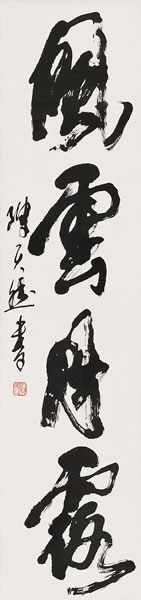 風雲月露
陳天然書